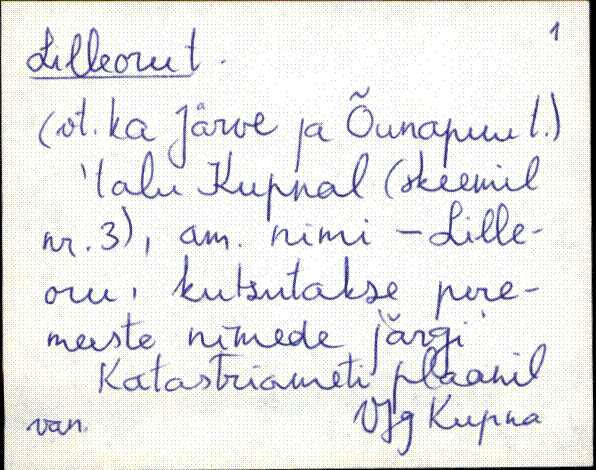 1
Lilleoru t.
(vt. ka Järve ja Õunapuu t.)
'talu Kupnal (skeemil
nr. 3), am. nimi – Lille-
oru, kutsutakse pere-
meeste nimede järgi'
Katastriameti plaanil
van. VJg Kupna